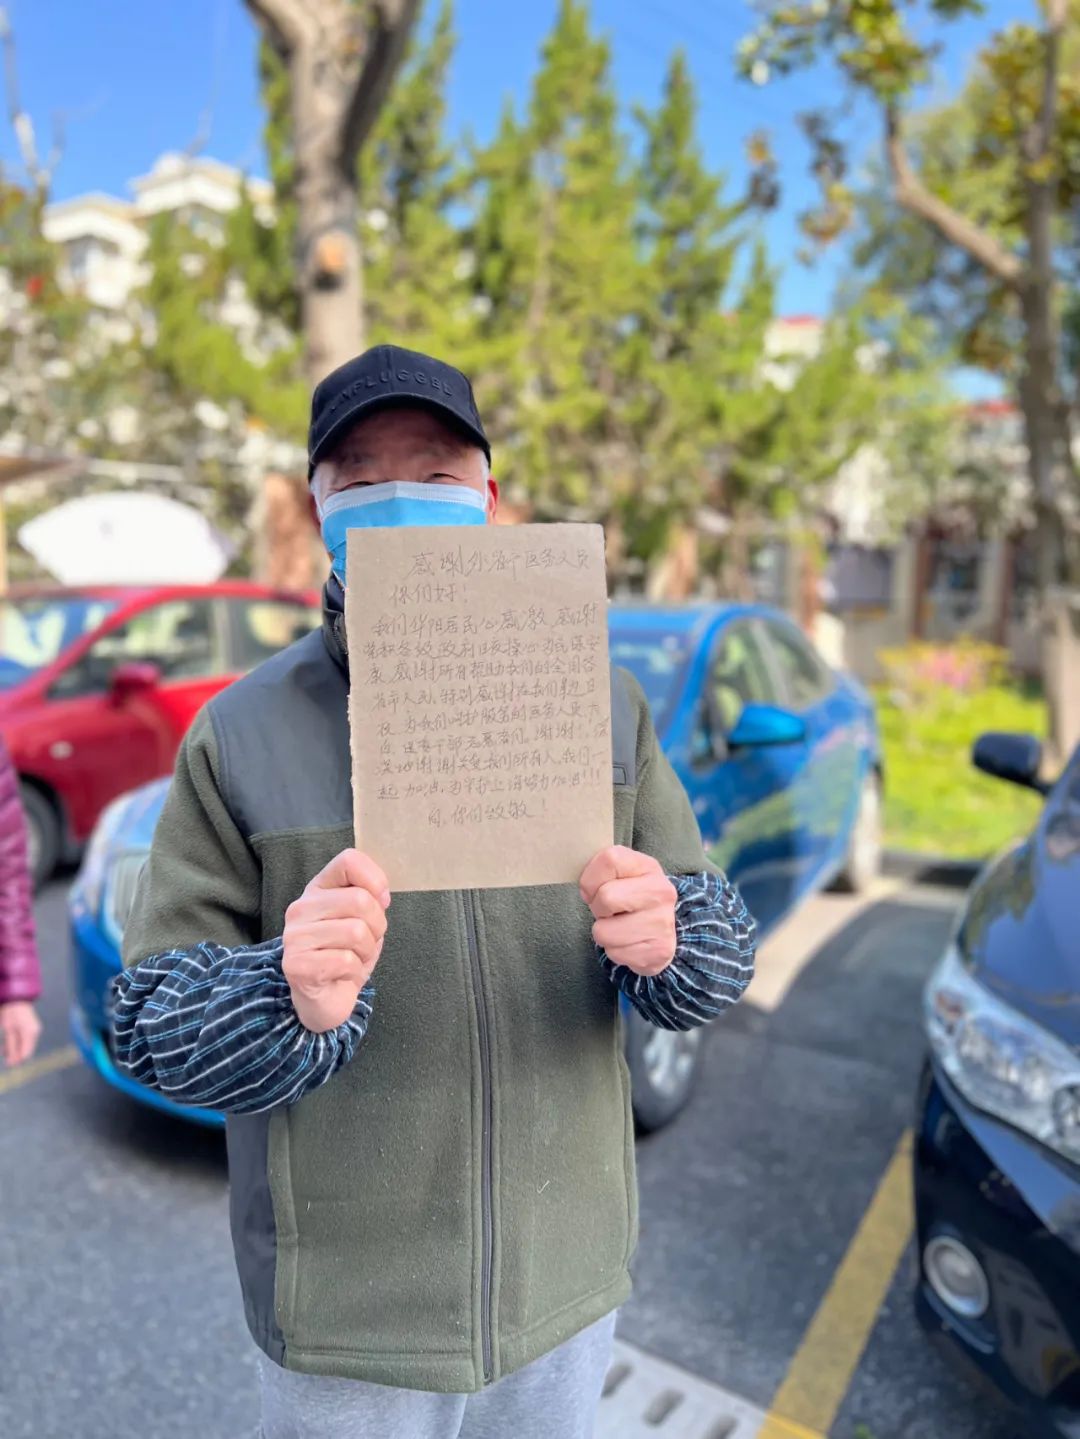 UNPLUGGED
感谢外省市医务人员
你们好！
我们华阳居民心感激，感谢
党和各级政府日夜操心为民保安
康，感谢所有帮助我们的全国各
省市人民，特别感谢在我们身边日
夜为我们守护服务的医务人员，
居委干部
深地谢谢关爱我们所有人，我们一
起加油，为守护上海努力加油！！！
向你们致敬！